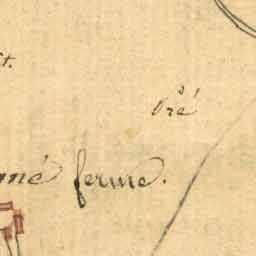 t.
Pré
né ferme.